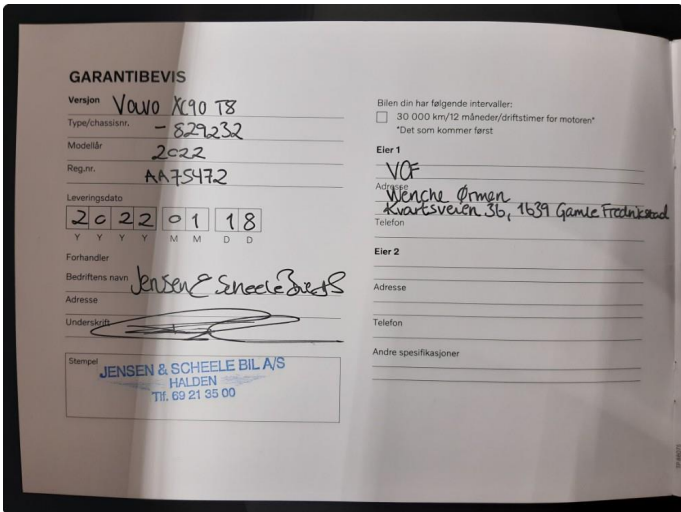 GARANTIBEVIS
Versjon Volvo XC90 T8
Type/chassisnr. - 829232
Modellår 2022
Reg.nr. AA75472
Leveringsdato
2022 01 18
Y Y Y Y M M D D
Forhandler
Bedriftens navn Jensen & Scheele Bil A/S
Adresse
Underskrift
Stempel
JENSEN & SCHEELE BIL A/S
HALDEN
Tlf. 69 21 35 00
Bilen din har følgende intervaller:
30 000 km/12 måneder/driftstimer for motoren*
*Det som kommer først
Eier 1
VOF
Adresse Wenche Ørmen
Kvartsveien 36, 1639 Gamle Fredrikstad
Telefon
Eier 2
Adresse
Telefon
Andre spesifikasjoner